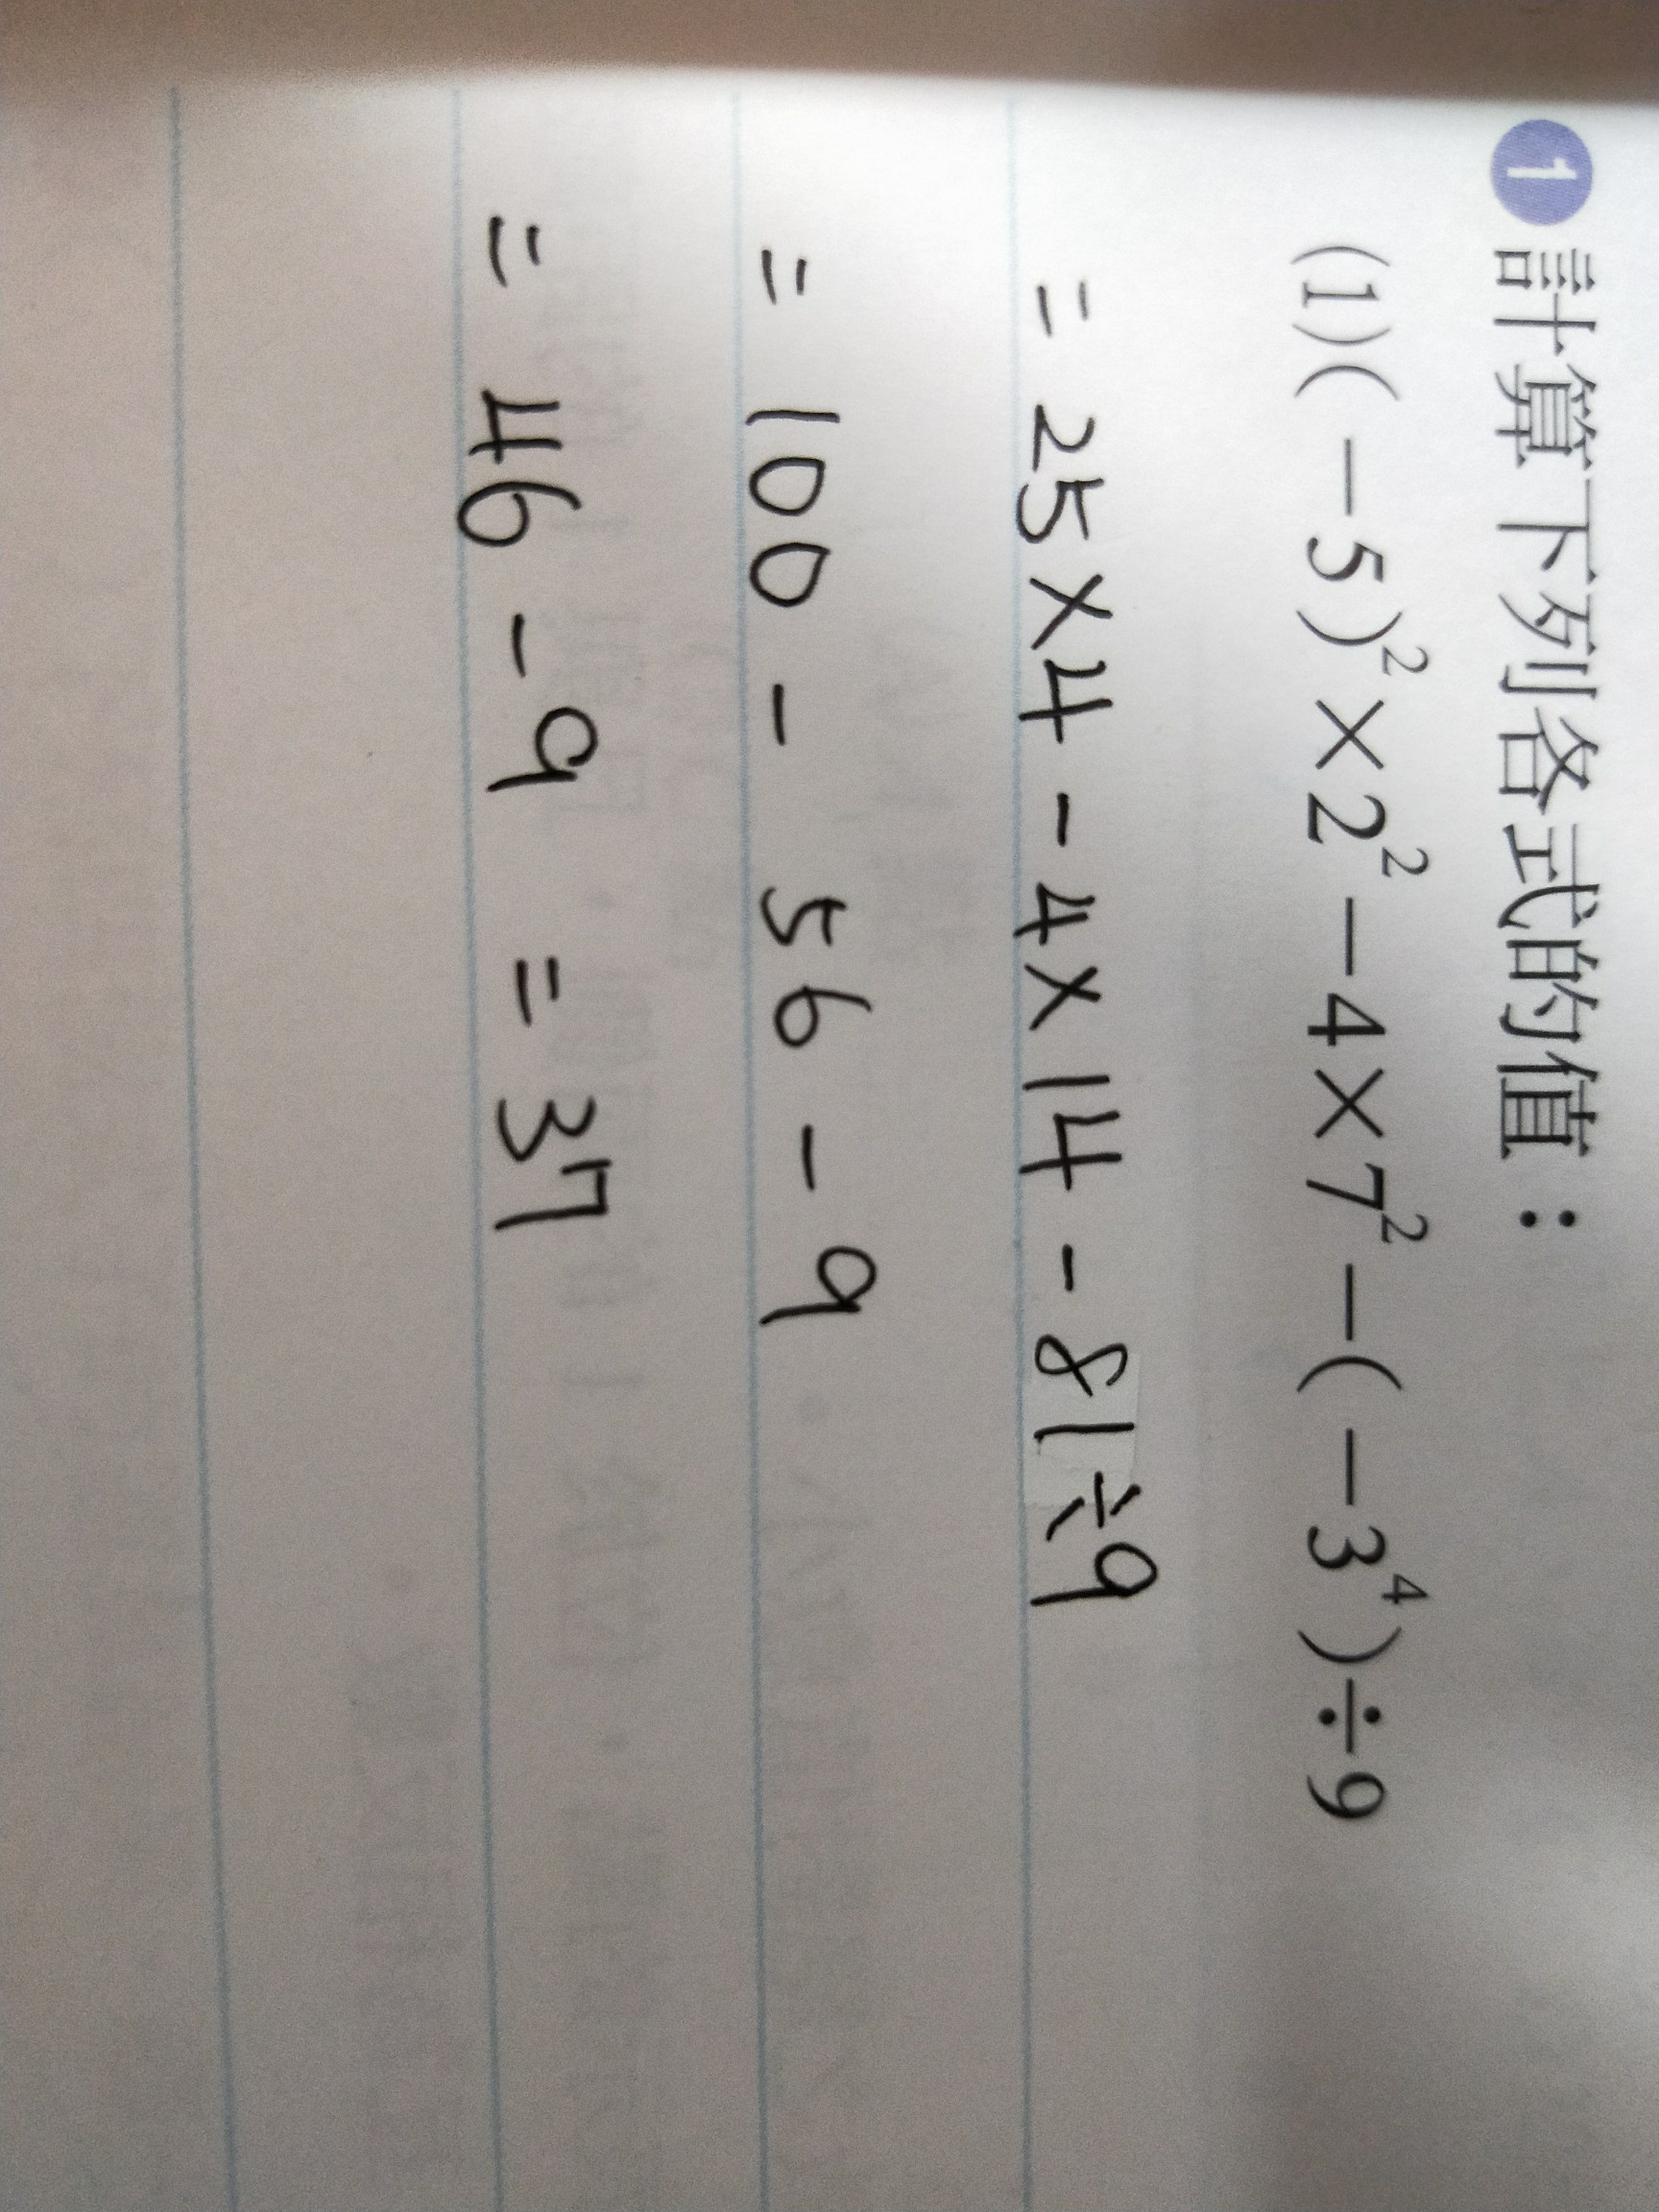 1 計算下列各式的值：
(1)(−5)²×2²−4×7²−(−3⁴)÷9
= 25×4−4×14−81÷9
= 100 − 56 − 9
= 46 − 9 = 37